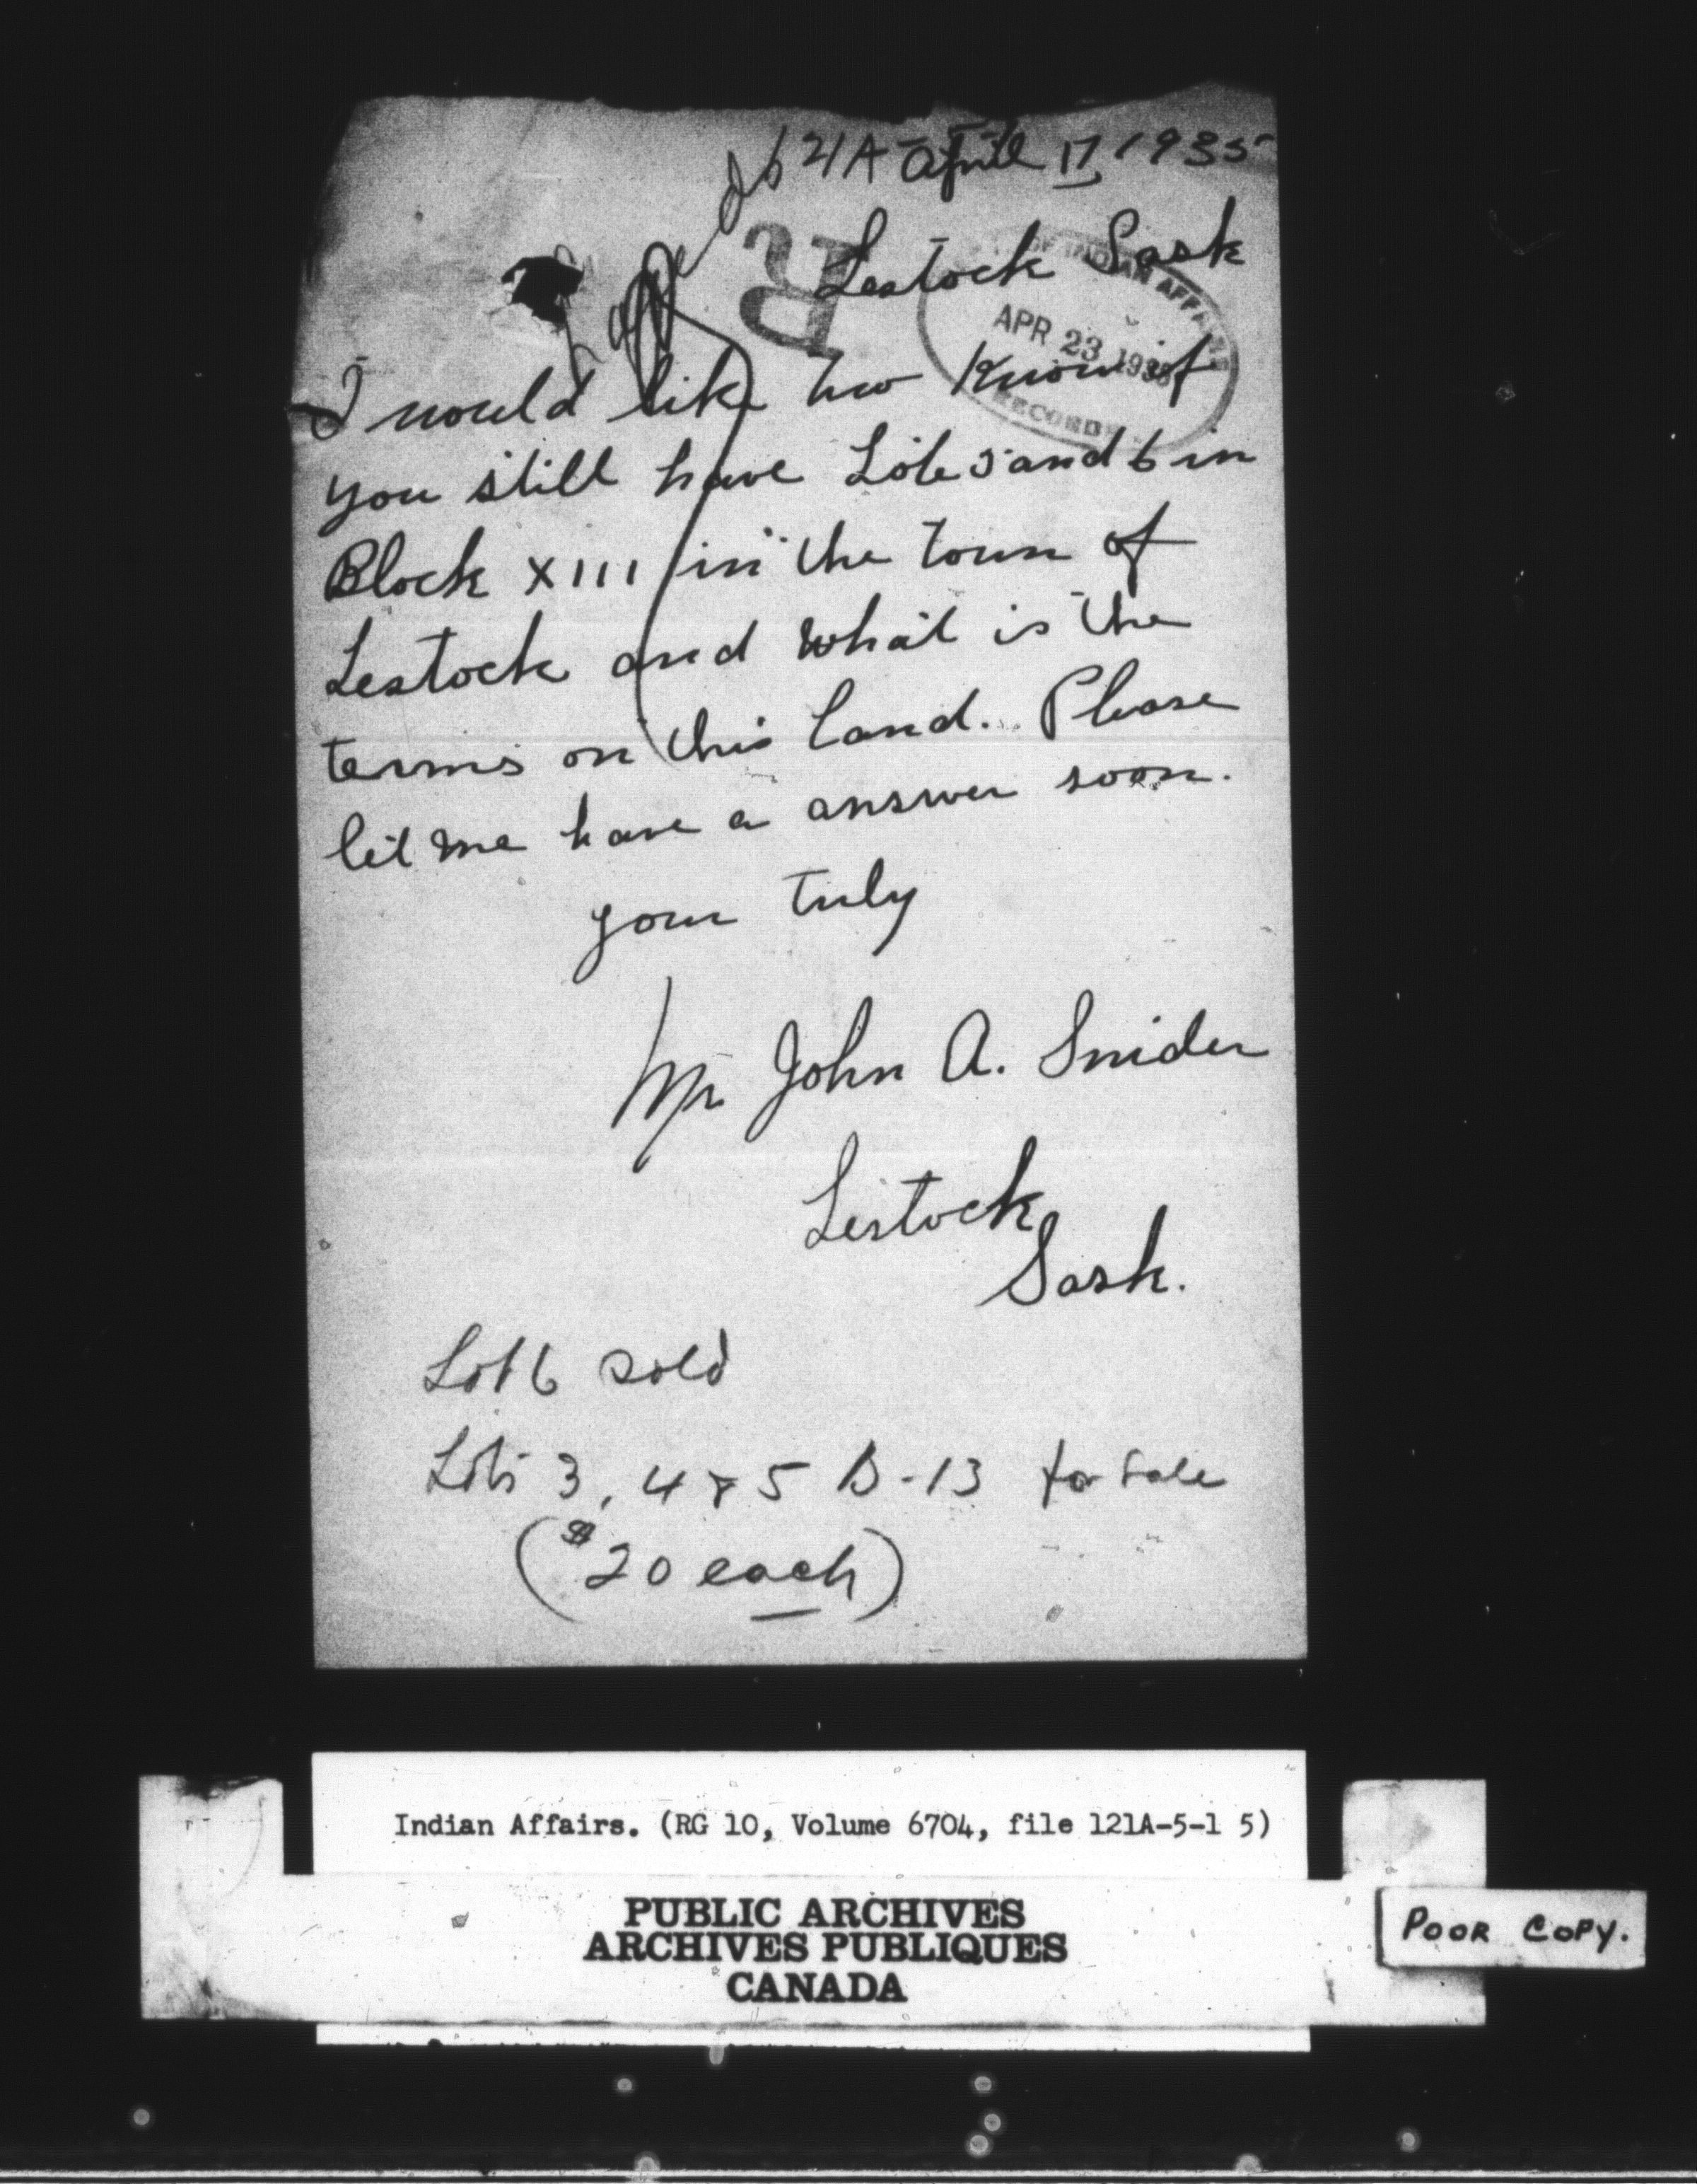 121A April 17 1935
R
Lestock Sask
OF INDIAN AFFAIRS
APR 23 1935
RECORDS
I would like two know if
you still have Lots 5 and 6 in
Block XIII in the town of
Lestock and what is the
terms on this land. Please
let me have a answer soon.
your truly
Mr John A. Snider
Lestock
Sask.
Lot 6 sold
Lots 3, 4 & 5 B-13 for sale
($20 each)
Indian Affairs. (RG 10, Volume 6704, file 121A-5-1 5)
PUBLIC ARCHIVES
ARCHIVES PUBLIQUES
CANADA
POOR COPY.